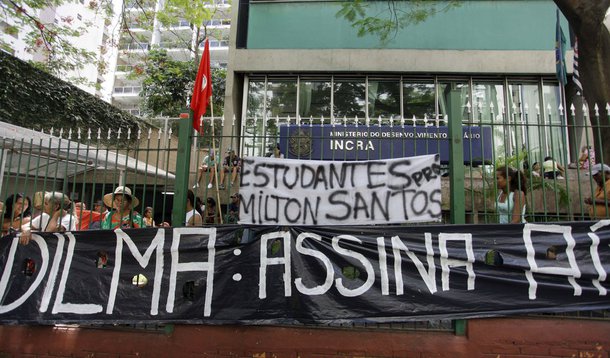 MINISTÉRIO DO DESENVOLVIMENTO AGRÁRIO
INCRA
ESTUDANTES PRÓ
MILTON SANTOS
DILMA: ASSINA